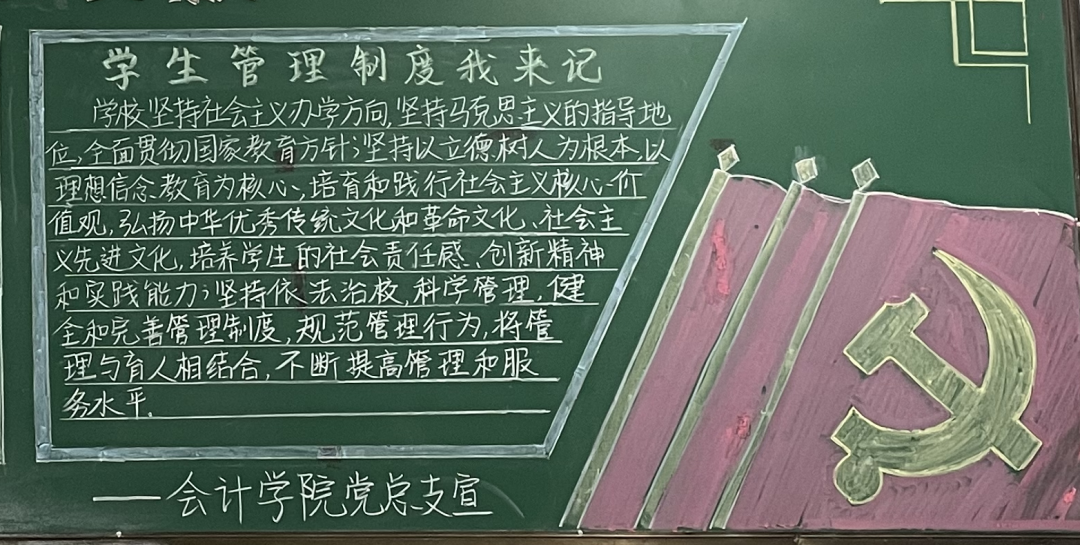 学生管理制度我来记
学校坚持社会主义办学方向,坚持马克思主义的指导地
位,全面贯彻国家教育方针;坚持以立德树人为根本,以
理想信念教育为核心、培育和践行社会主义核心价
值观,弘扬中华优秀传统文化和革命文化、社会主
义先进文化,培养学生的社会责任感、创新精神
和实践能力;坚持依法治校,科学管理,健
全和完善管理制度,规范管理行为,将管
理与育人相结合,不断提高管理和服
务水平.
——会计学院党总支宣